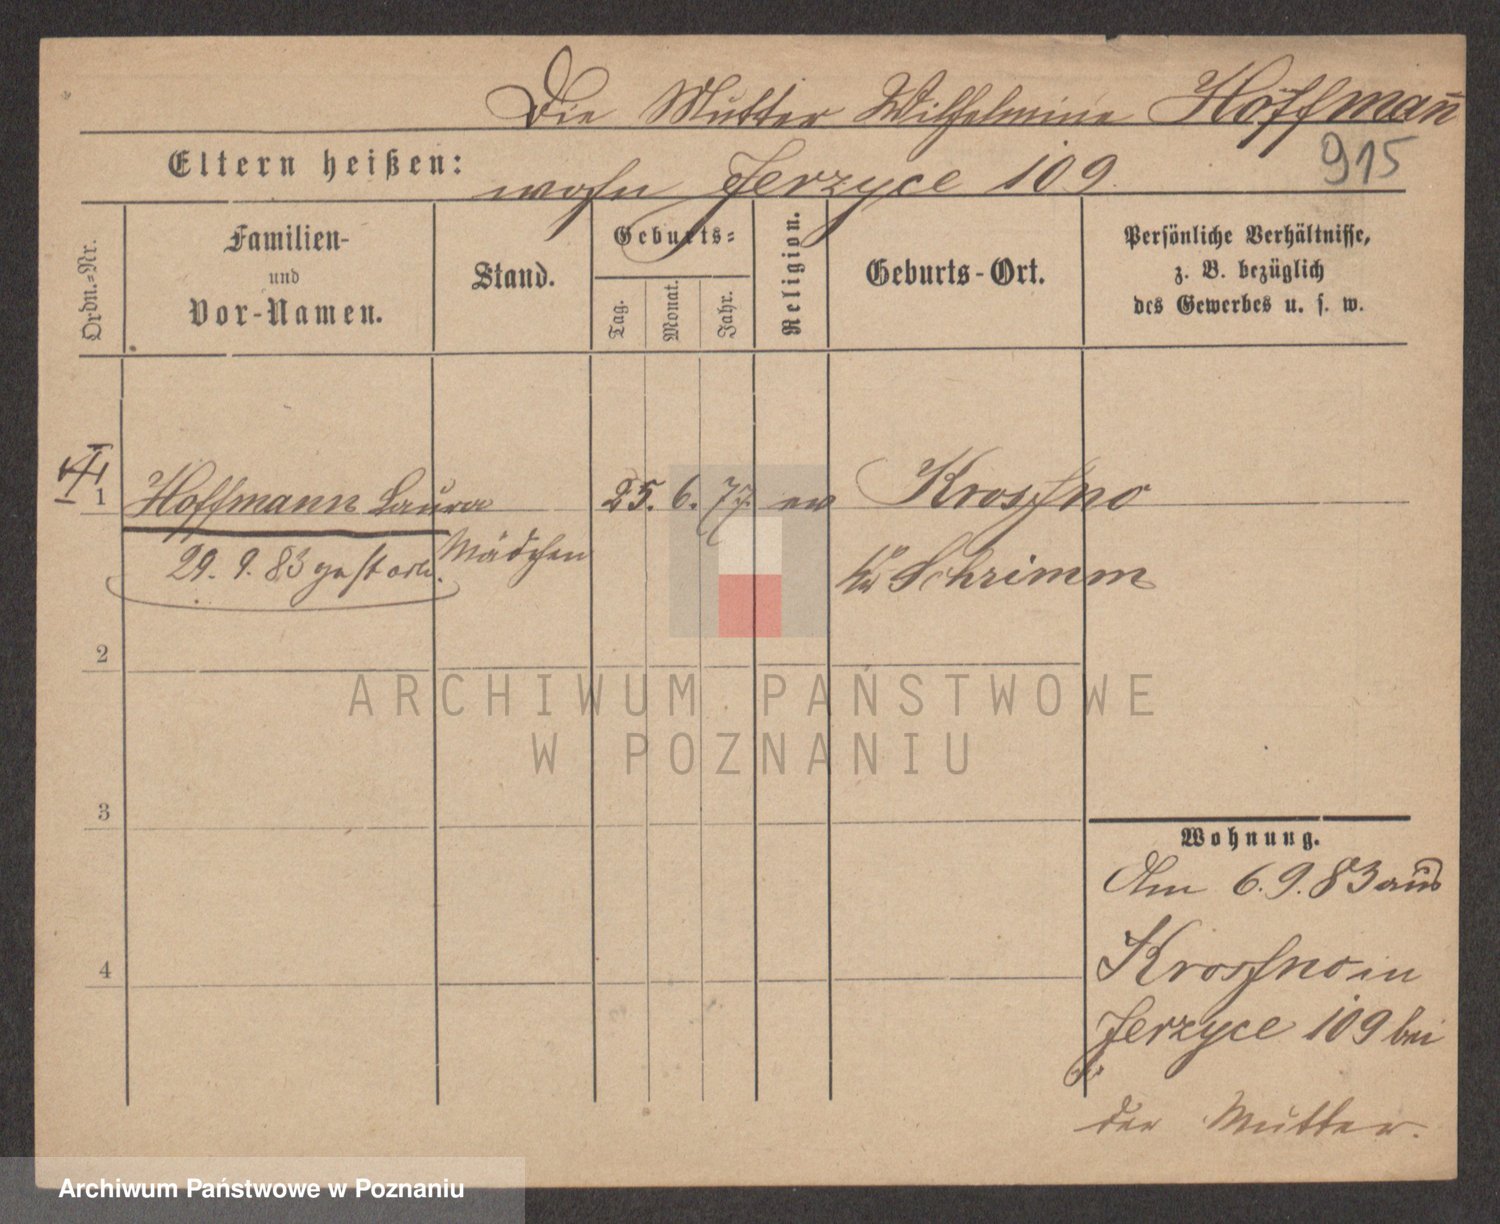 Die Mutter Wilhelmine Hoffmañ
Eltern heißen:
wohn Jerzyce 109.
915
Ordn.-Nr.
Familien-
und
Vor-Namen.
Stand.
Geburts-
Tag.
Monat.
Jahr.
Religion.
Geburts-Ort.
Persönliche Verhältnisse,
z. B. bezüglich
des Gewerbes u. s. w.
1
Hoffmann Laura
Mädchen
25. 6. 77. ev
Krossno
Kr Schrimm
29. 9. 83 gestorb.
2
3
4
Wohnung.
Am 6. 9. 83 aus
Krossno in
Jerzyce 109 bei
der Mutter.
ARCHIWUM PAŃSTWOWE
W POZNANIU
Archiwum Państwowe w Poznaniu